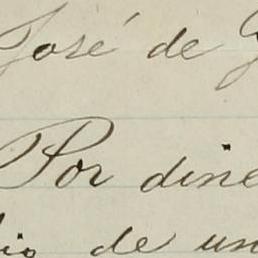 José de
Por dine
de un